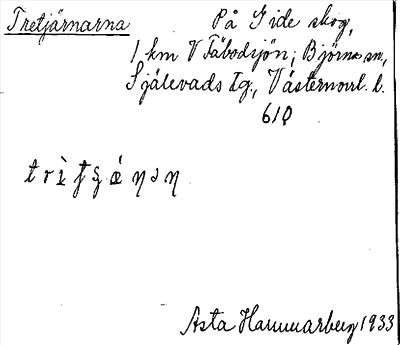 Tretjärnarna
På Gide skog,
1 km V Fäbodsjön, i Björna sn,
Själevads tg., Västernorrl. l.
610
Asta Hammarberg 1933